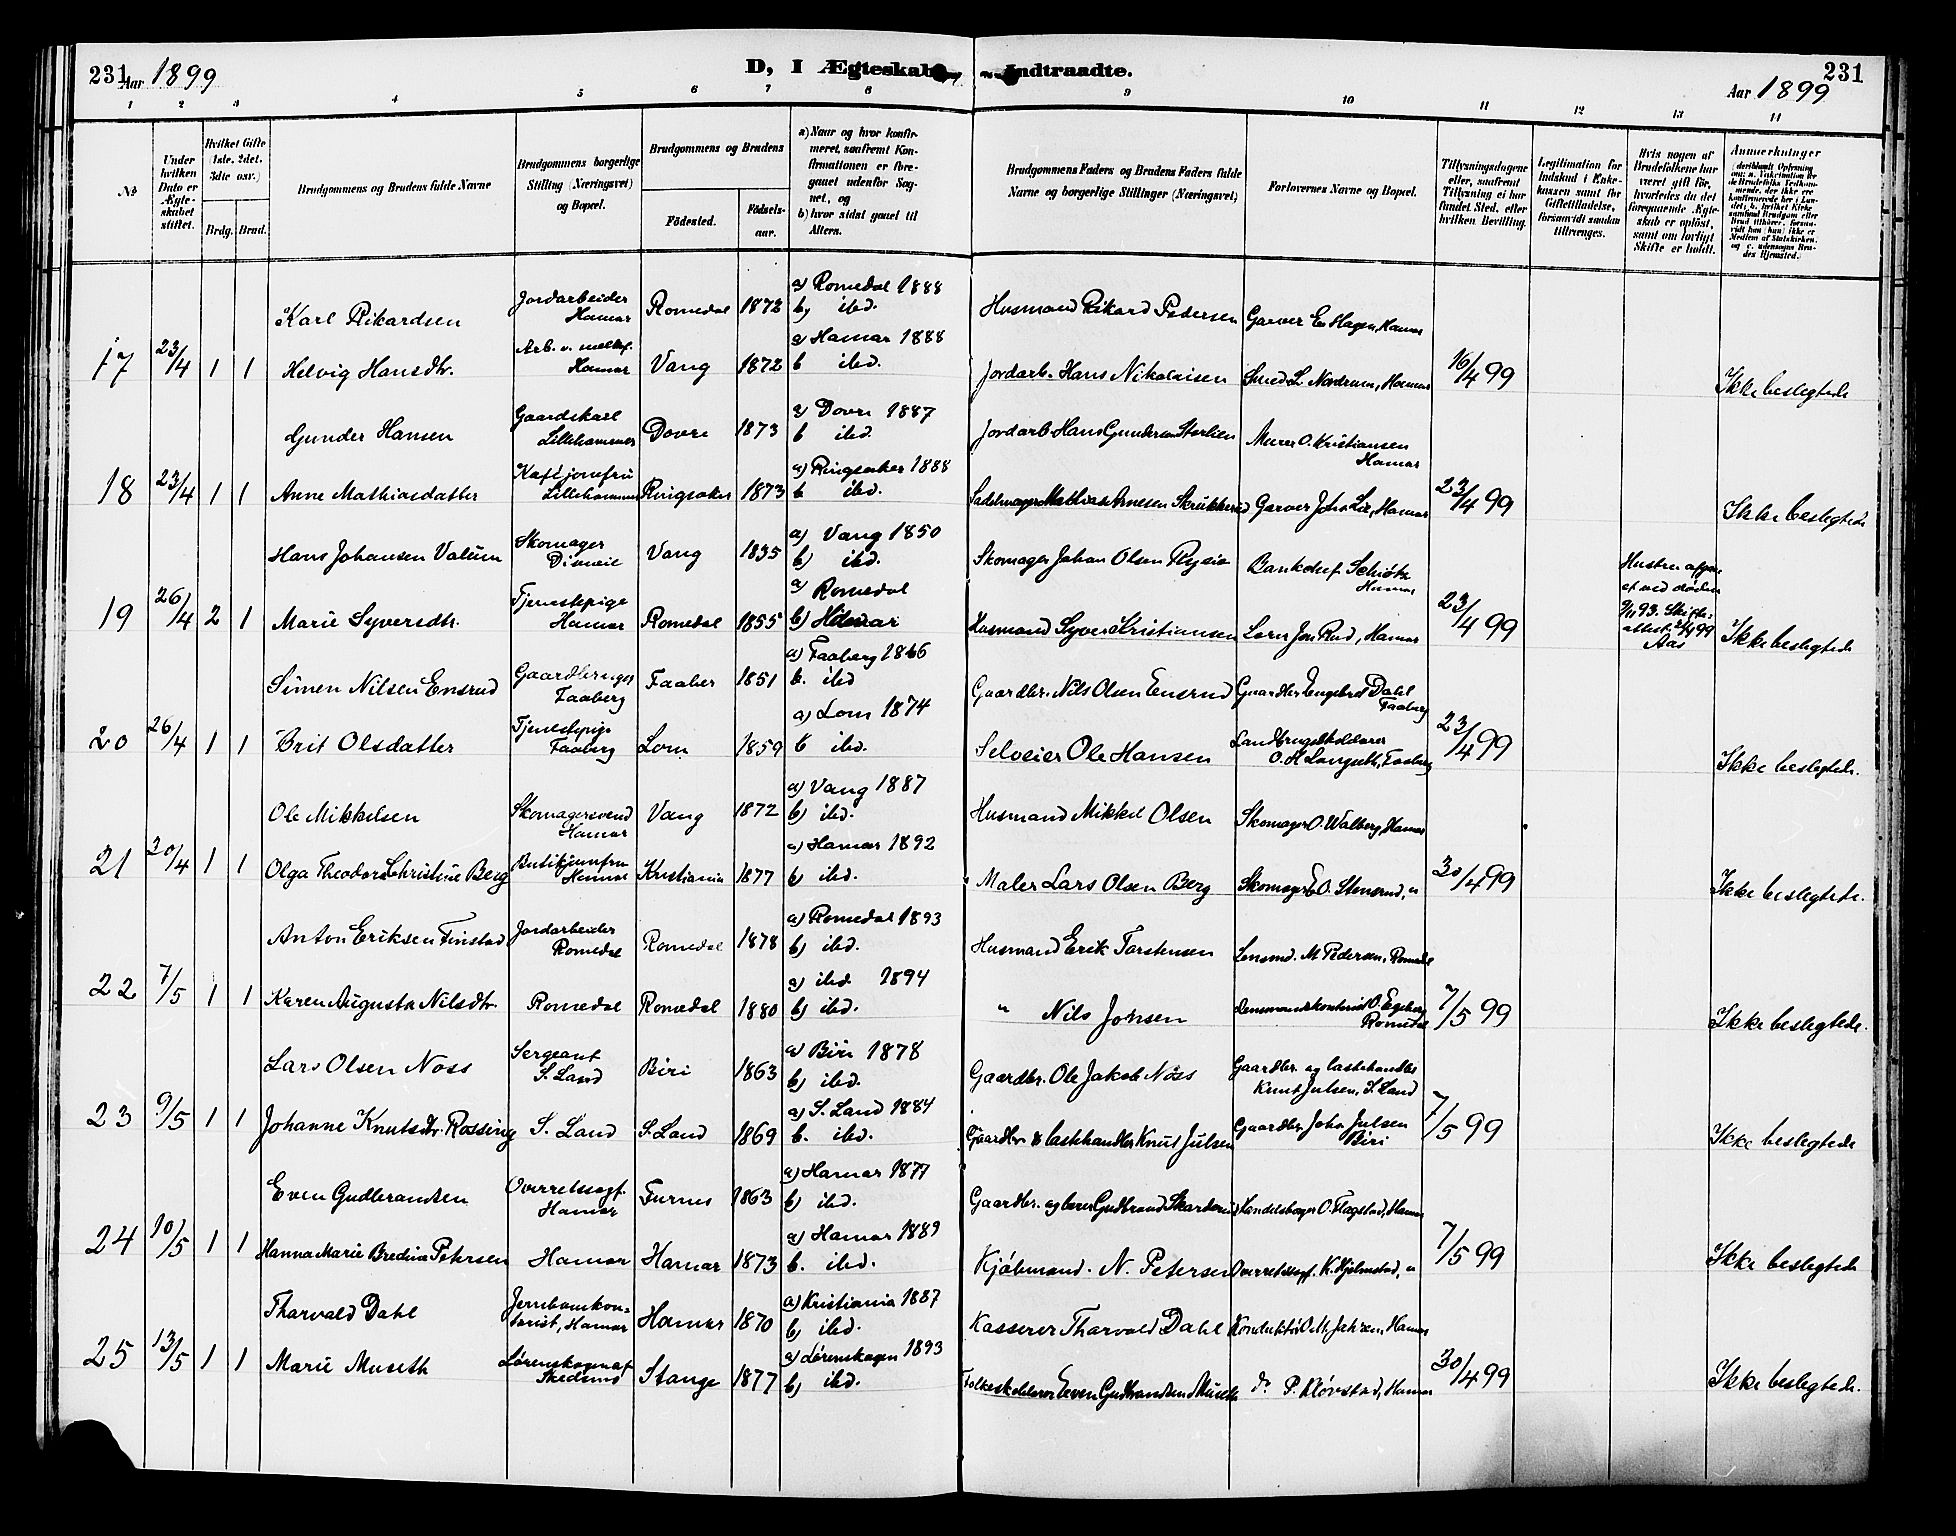 231 Aar 1899 D, I Ægteskab Indtraadte. Aar 1899 231
1 2 3 4 5 6 7 8 9 10 11 12 13 14
№
Under hvilken Dato er Ægteskabet stiftet.
Hvilket Gifte (1ste, 2det, 3die osv.)
Brdg. Brud.
Brudgommens og Brudens fulde Navne
Brudgommens borgerlige Stilling (Næringsvei) og Bopæl.
Brudgommens og Brudens
Fødested. Fødselsaar.
a) Naar og hvor konfirmeret, saafremt Konfirmationen er foregaaet udenfor Sognet, og
b) hvor sidst gaaet til Alters.
Brudgommens Faders og Brudens Faders fulde Navne og borgerlige Stillinger (Næringsvei)
Forlovernes Navne og Bopæl.
Tillysningsdagene eller, saafremt Tillysning ei har fundet Sted, efter hvilken Bevilling.
Legitimation for Indskud i Enkekassen samt for Giftetilladelse, forsaavidt saadan tiltrænges.
Hvis nogen af Brudefolkene har været gift før, hvorledes da det foregaaende Ægteskab er opløst, samt om lovligt Skifte er holdt.
Anmærkninger
Karl Rikardsen Jordarbeider Hamar Romedal 1872 a) Romedal 1888 b) ibd. Husmand Rikard Pedersen Garver E. Hagen, Hamar
17 23/4 1 1 Helvig Hansdtr. Hamar Vang 1872 a) Hamar 1888 b ibd. Jordarb. Hans Nikolaisen Smed L. Nordrum, Hamar 16/4 99 Ikke beslegtede
Gunder Hansen Gaardskarl Lillehammer Dovre 1873 a) Dovre 1887 b ibd. Jordarb. Hans Gundersen Murer O. Kristiansen Hamar
18 23/4 1 1 Anne Mathiasdatter Lillehammer Ringsaker 1873 a) Ringsaker 1888 b ibd. Sadelmager Mathias Arnesen Garver Johs Lie, Hamar 23/4 99 Ikke beslegtede
Hans Johansen Valum Skomager Vang 1835 a) Vang 1850 b) ibd. Skomager Johan Olsen Bankchef Schiøtz Hamar
19 26/4 2 1 Marie Syversdtr. Tjenestepige Hamar Romedal 1855 a) Romedal b) Hamar Husmand Syver Kristiansen Jon Rud, Hamar 23/4 99 Hustru ved døden 93. Skifteattest 99 Aas Ikke beslegtede
Simen Nilsen Ensrud Gaardbruger Faaberg Faaber 1851 a) Faaberg 1866 b. ibd Gaardbr. Nils Olsen Ensrud Gaardbr. Engebret Dahl Faaberg
20 26/4 1 1 Brit Olsdatter Tjenestepige Faaberg Lom 1859 a) Lom 1874 b ibd. Selveier Ole Hansen O. H. Langseth, Faaberg 23/4 99 Ikke beslegtede.
Ole Mikkelsen Skomagersvend Hamar Vang 1872 a) Vang 1887 b) ibd. Husmand Mikkel Olsen Skomager O. Walberg, Hamar
21 30/4 1 1 Olga Theodora Christine Berg Butikjomfru Hamar Kristiania 1877 a) Hamar 1892 b) ibd. Maler Lars Olsen Berg Skomager E. O. Stensrud, " 30/4 99 Ikke beslegtede.
Anton Eriksen Finstad Jordarbeider Romedal Romedal 1878 a) Romedal 1893 b) ibd. Husmand Erik Torstensen Lensmd. M. Pedersen, Romedal
22 7/5 1 1 Karen Augusta Nilsdtr. Romedal Romedal 1880 a) ibd. 1894 b) ibd. " Nils Johsen Lensmandskontorist O. Egeberg Romedal 7/5 99 Ikke beslegtede.
Lars Olsen Noss Sergeant S. Land Biri 1863 a) Biri 1878 b) ibd. Gaardbr. Ole Jakobs Nøss Gaardbr. og lasthandler Knut Julsen, S. Land
23 9/5 1 1 Johanne Knutsdtr. Rossing S. Land S. Land 1869 a) S. Land 1884 b. ibd. Gaardbr. & lasthandler Knut Julsen Gaardbr. Johs Julsen Biri 7/5 99 Ikke beslegtede
Even Gudbrandsen Overretssagf. Hamar Furnes 1863 a) Hamar 1877 b) ibd. Gaardbr. og lærer Gudbrand Skarderud Handelsborger O. Flagstad, Hamar
24 10/5 1 1 Hanna Marie Bredine Petersen Hamar Hamar 1873 a) Hamar 1889 b. ibd. Kjøbmand N. Petersen Overretssagf. K. Hjelmstad, " 7/5 99 Ikke beslegtede
Tharvald Dahl Jernbanekontorist, Hamar Hamar 1870 a) Kristiania 1887 b) ibd. Kasserer Tharvald Dahl Konduktør O. M. Jahren, Hamar
25 13/5 1 1 Marie Museth Lørenskogen af Skedsmo Stange 1877 a) Lørenskogen 1893 b) ibd. Folkeskolelærer Even Gudbrandsen Museth do P. Kløvstad, Hamar 30/4 99 Ikke beslegtede.